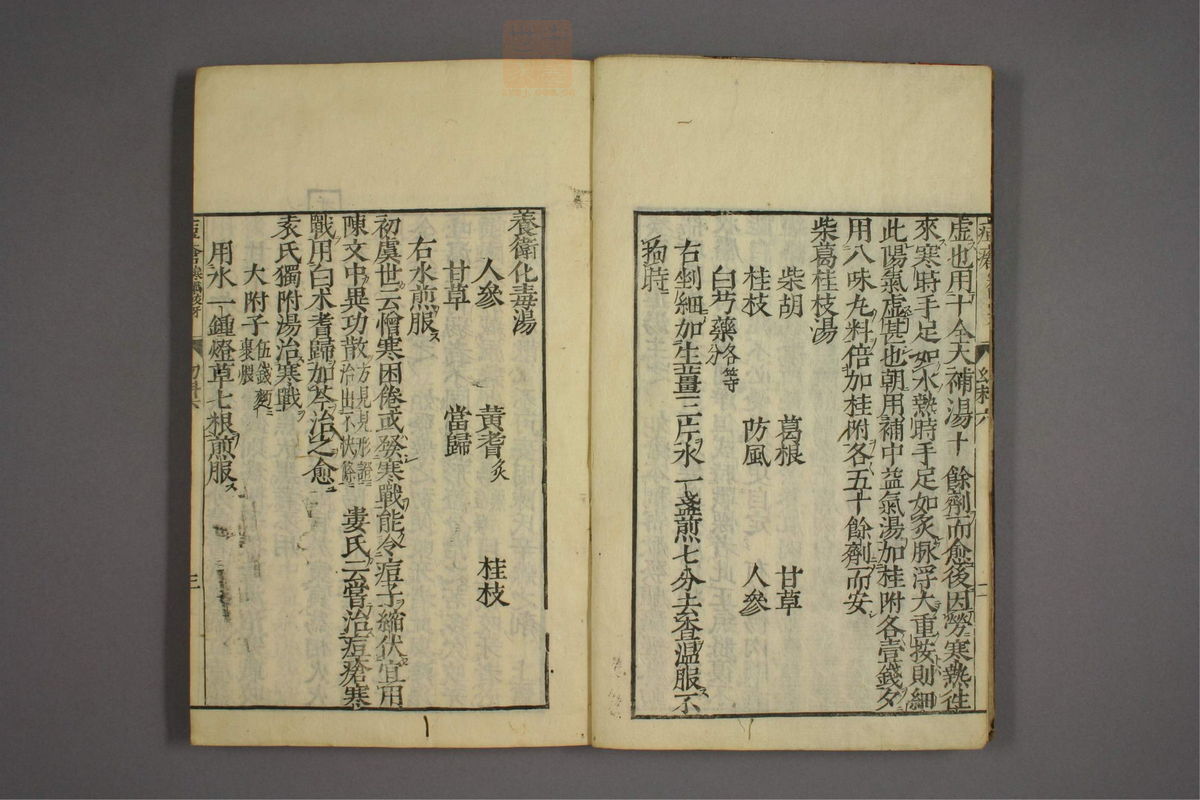 虛也用十全大補湯十餘劑而愈後因勞寒熱往
來寒時手足如冰熱時手足如炙脉浮大重按則細
此陽氣虛甚也朝用補中益氣湯加桂附各壹錢夕
用八味丸料倍加桂附各五十餘劑而安
柴葛桂枝湯
柴胡 葛根 甘草
桂枝 防風 人參
白芍藥各等分
右剉細加生薑三片水一盞煎七分去查溫服不
拘時
養衛化毒湯
人參 黃耆炙 桂枝
甘草 當歸
右水煎服
初虞世云憎寒困倦或發寒戰能令痘子縮伏宜用
陳文中異功散方見見形證治出不快條 婁氏云嘗治痘瘡寒
戰用白朮耆歸加芩治之愈
袁氏獨附湯治寒戰
大附子伍錢麪裹煨
用水一鍾燈草七根煎服
三